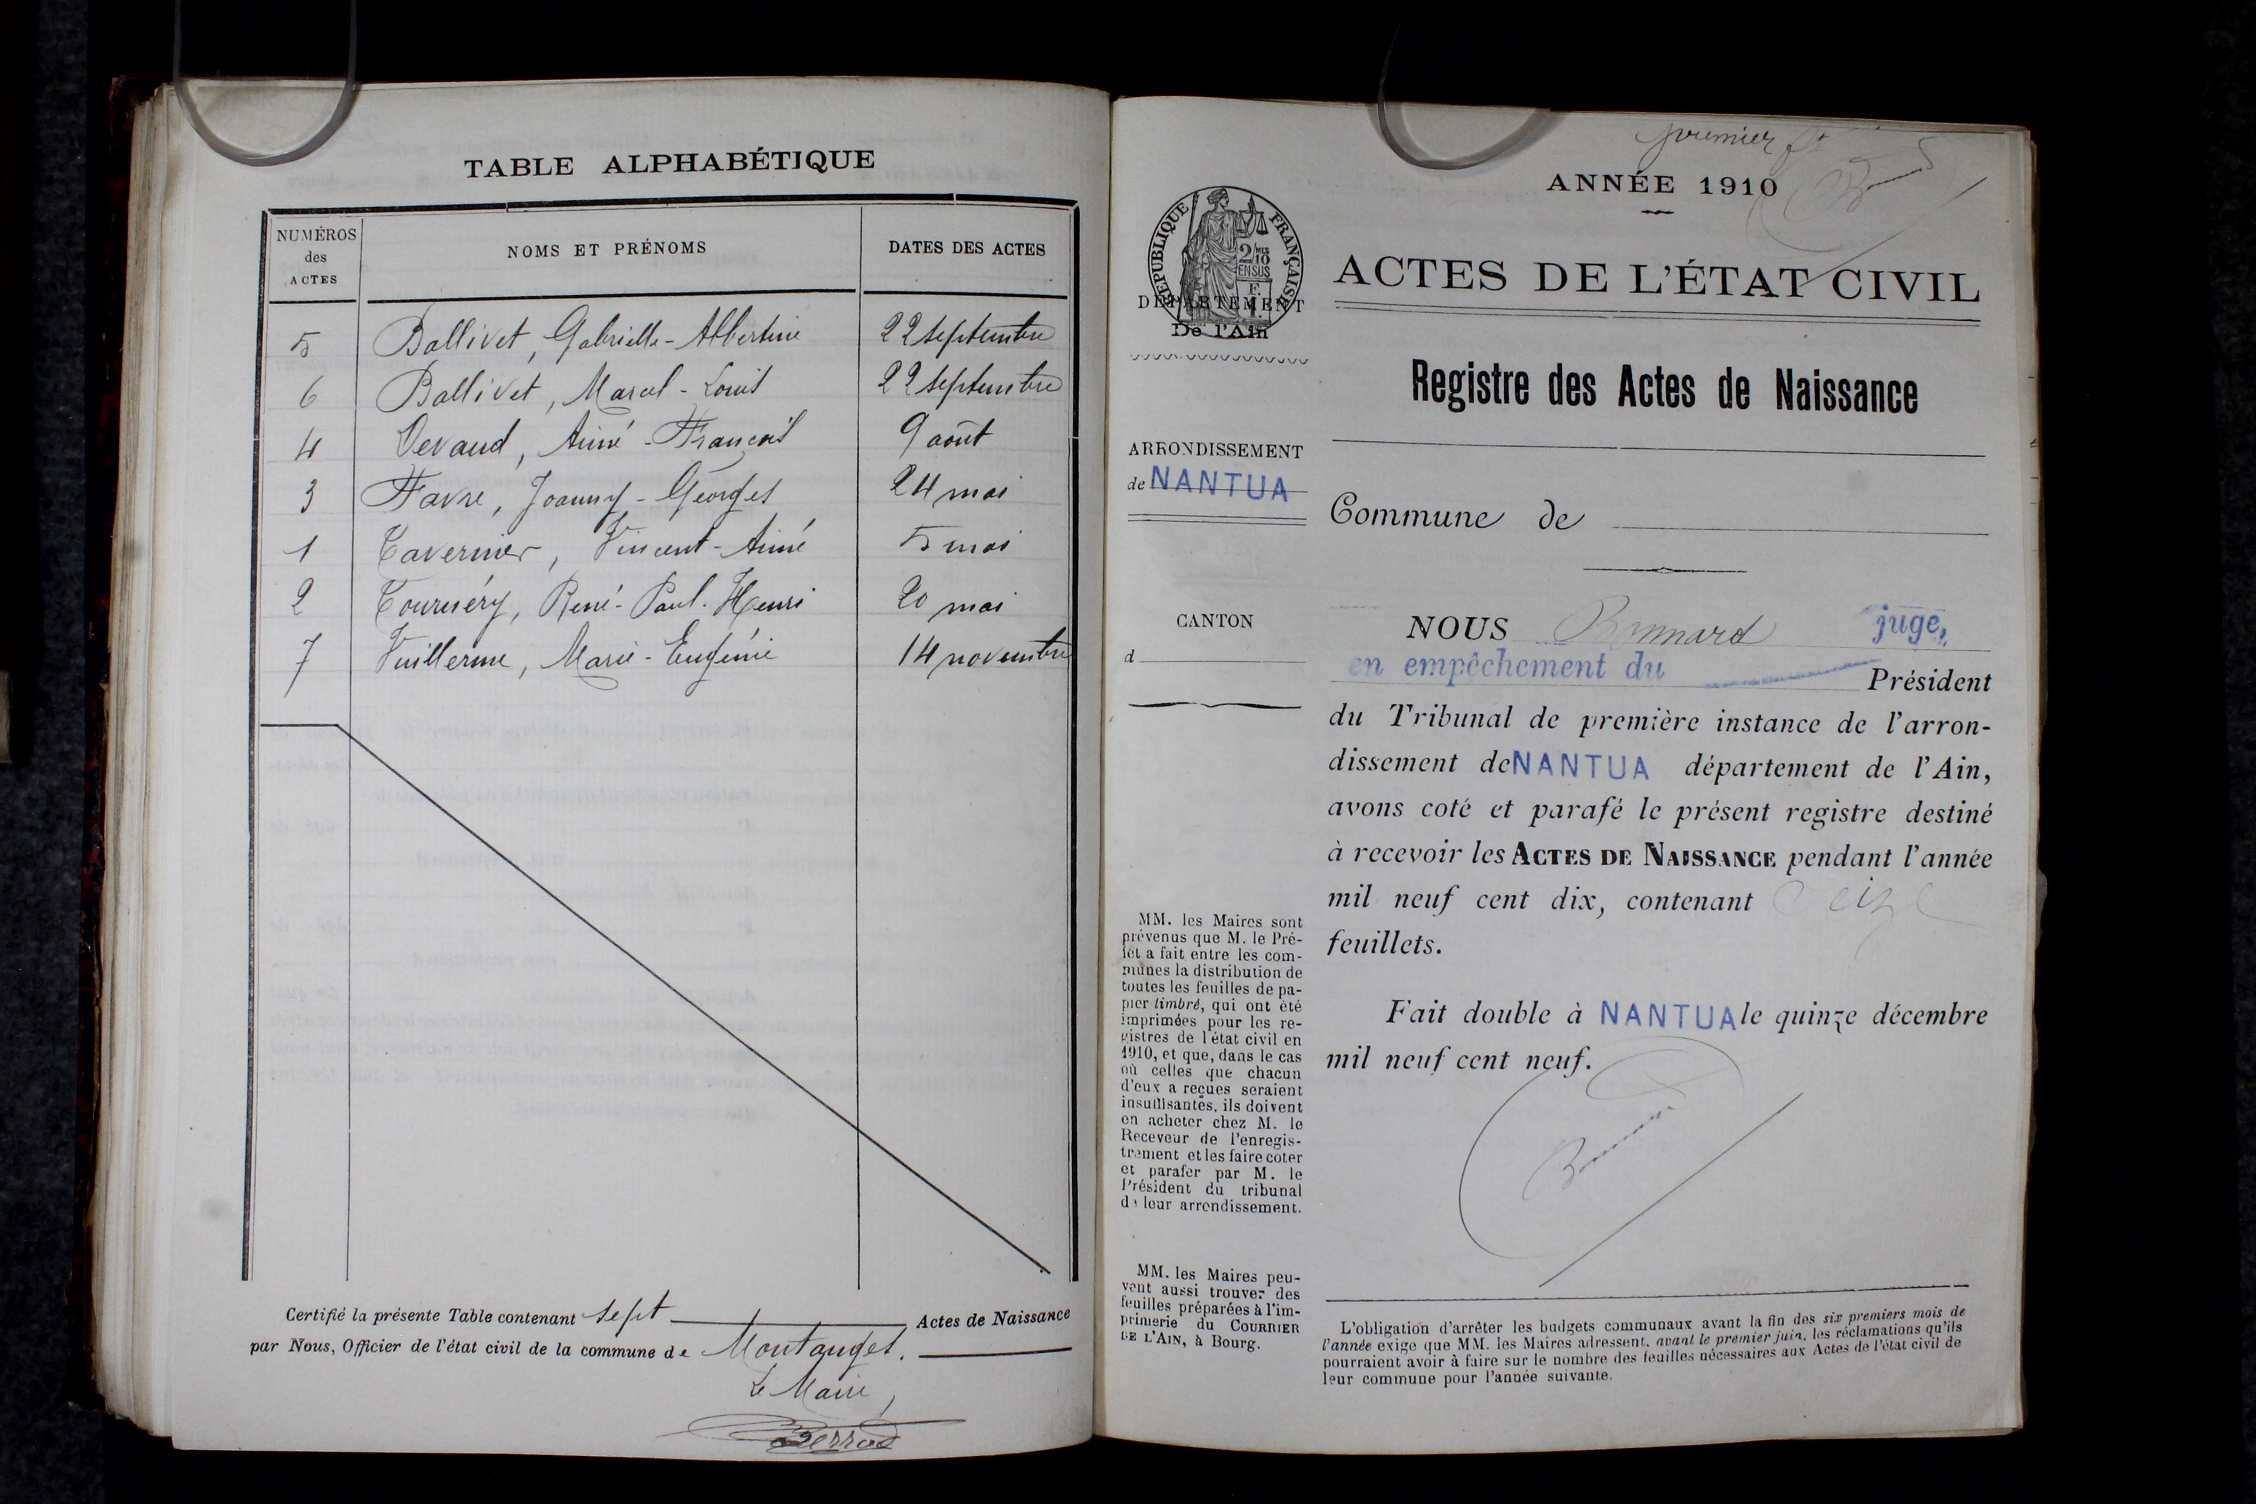 TABLE ALPHABÉTIQUE
NUMÉROS des ACTES
NOMS ET PRÉNOMS
DATES DES ACTES
5 Ballivet, Gabrielle-Albertine 22 septembre
6 Ballivet, Marcel-Louis 22 septembre
4 Devaud, Aimé-François 9 août
3 Favre, Joanny-Georges 24 mai
1 Tavernier, Vincent-Aimé 5 mai
2 Tournéry, René-Paul-Henri 20 mai
7 Vuillerme, Marie-Eugénie 14 novembre
Certifié la présente Table contenant sept Actes de Naissance
par Nous, Officier de l'état civil de la commune de Montanges.
Le Maire,
premier
ANNÉE 1910
RÉPUBLIQUE FRANÇAISE
2/10
EN SUS
DÉPARTEMENT
De l'Ain
ACTES DE L'ÉTAT CIVIL
Registre des Actes de Naissance
ARRONDISSEMENT
de NANTUA
Commune de
CANTON
d
NOUS juge,
en empêchement du Président
du Tribunal de première instance de l'arron-
dissement de NANTUA département de l'Ain,
avons coté et parafé le présent registre destiné
à recevoir les ACTES DE NAISSANCE pendant l'année
mil neuf cent dix, contenant seize
feuillets.
Fait double à NANTUA le quinze décembre
mil neuf cent neuf.
MM. les Maires sont
prévenus que M. le Pré-
fet a fait entre les com-
munes la distribution de
toutes les feuilles de pa-
pier timbré, qui ont été
imprimées pour les re-
gistres de l'état civil en
1910, et que, dans le cas
où celles que chacun
d'eux a reçues seraient
insuffisantes, ils doivent
en acheter chez M. le
Receveur de l'enregis-
trement et les faire coter
et parafer par M. le
Président du tribunal
de leur arrondissement.
MM. les Maires peu-
vent aussi trouver des
feuilles préparées à l'im-
primerie du COURRIER
DE L'AIN, à Bourg.
L'obligation d'arrêter les budgets communaux avant la fin des six premiers mois de
l'année exige que MM. les Maires adressent, avant le premier juin, les réclamations qu'ils
pourraient avoir à faire sur le nombre des feuilles nécessaires aux Actes de l'état civil de
leur commune pour l'année suivante.